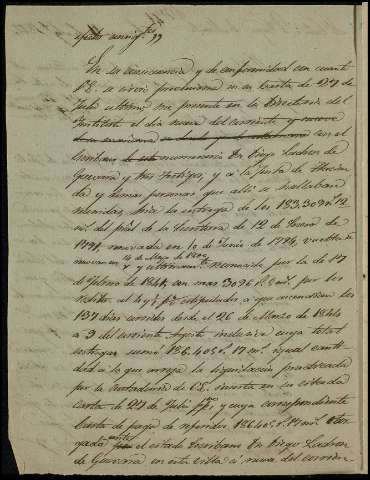 En su consecuencia y de conformidad con cuanto
V.E. se sirvió prevenirme en su carta de 27 de
Julio último me presenté en la Direccion del
Instituto el dia nueve del corriente y nueve
con el
Escribano de este numerario Dn Diego Ladron de
Guevara y tres testigos, y a la Junta de Hacien
da y demas personas que allí se hallaban
reunidas, hice la entrega de los 183,308 12
ms. del pral de la Escritura de 12 de Enero de
1791, renovada en 10 de Junio de 1794, vuelta a
renovar en 14 de Mayo de 1802
y últimamte renovada por la de 17
de Febrero de 1841, con mas 3096 rs 5 ms por los
reditos al 4 y ½ p% estipulados a que ascendian los
137 dias corridos desde el 26 de Marzo de 1844
a 9 del corriente Agosto inclusive cuya total
entrega sumó 186.405 rs 17 ms igual canti
dad a lo que arroja la liquidacion practicada
por la Contaduria de V.E. inserta en su citada
carta de 27 de Julio ppdo, y cuya correspondiente
Carta de pago de referidos 186.405 rs 17 ms otor
gada ante el citado Escribano Dn Diego Ladron
de Guevara en esta villa a nueve del corrien